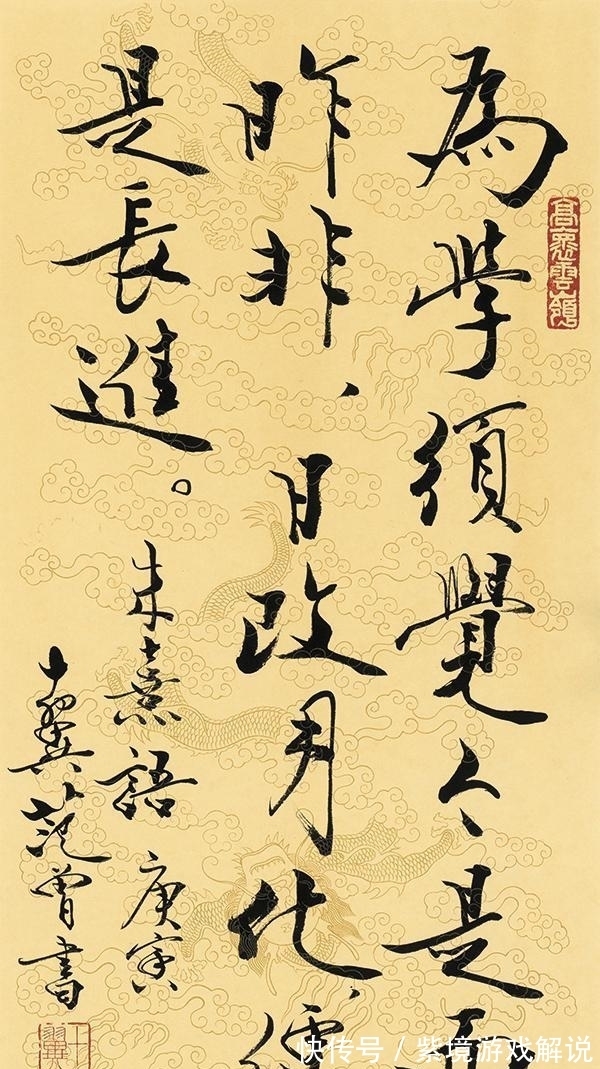 為學須覺今是而
昨非、日改月化、便
是長進。
朱熹語 庚寅
十翼范曾書
高惹雲嶺
十翼
快传号 / 紫境游戏解说